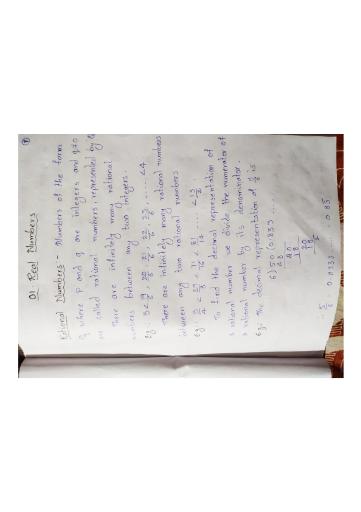 01. Real Numbers
Rational Numbers - Numbers of the form
p/q where P and q are integers and q≠0
are called rational numbers, represented by Q
There are infinitely many rational
numbers between any two integers.
Eg 3 < 19/6, 20/6, 21/6, 22/6, 23/6, ...... < 4
There are infinitely many rational numbers
between any two rational numbers
To find the decimal representation of
a rational number we divide the numerator of
a rational number by its denominator.
Eg. The decimal representation of 5/6 is
6) 50 (0.833 ....
48
20
18
20
18